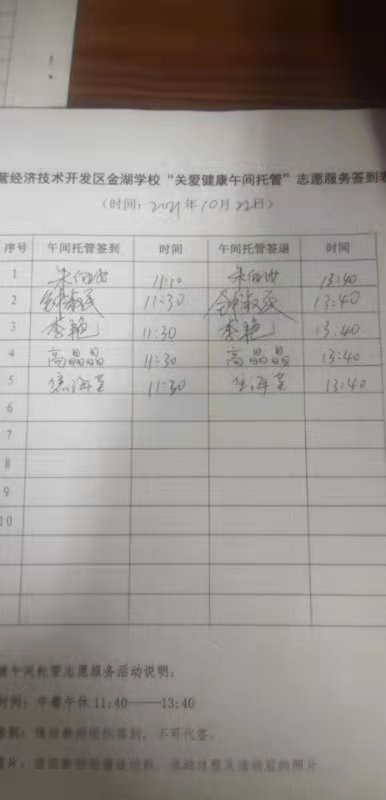 营经济技术开发区金湖学校“关爱健康午间托管”志愿服务签到表
（时间：2021年10月22日）
序号 午间托管签到 时间 午间托管签退 时间
1 11:30 13:40
2 11:30 13:40
3 李艳 11:30 李艳 13:40
4 高晶晶 11:30 高晶晶 13:40
5 11:30 13:40
6
7
8
9
10
康午间托管志愿服务活动说明：
时间：午餐午休11:40——13:40
签到：值班教师组织签到，不可代签。